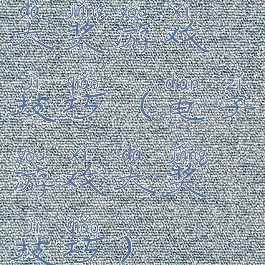 dà jiǎng yóu xì
大奖游戏
jì qiǎo diàn zǐ
技巧（电子
yóu xì dà jiǎng
游戏大奖
jì qiǎo
技巧）